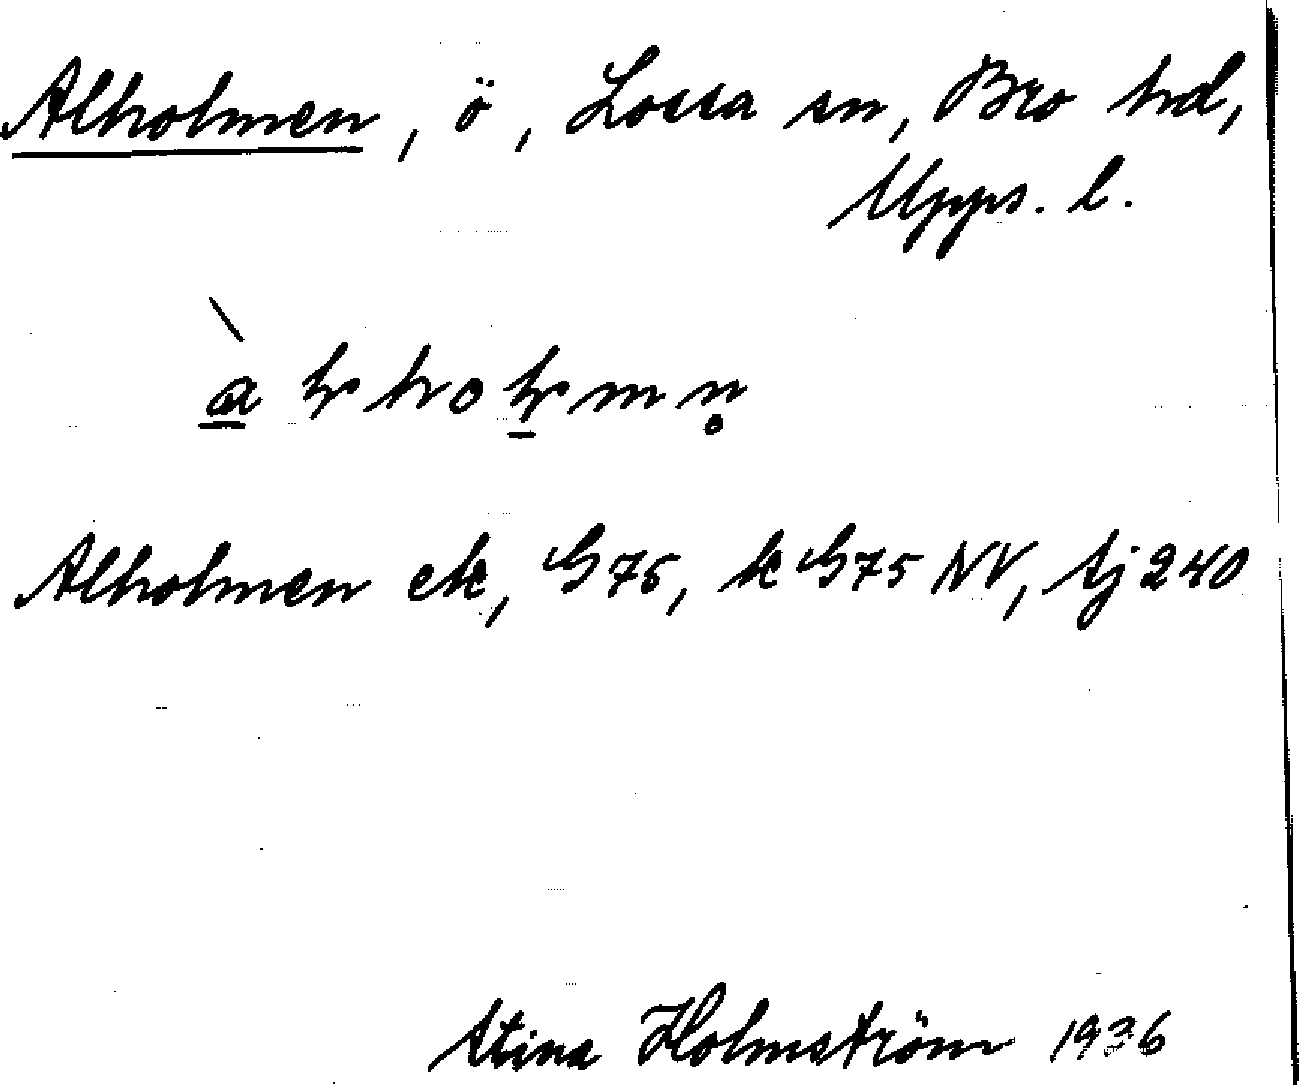 Alholmen, ö, Lossa sn, Bro hd,
Upps. l.
Alholmen ek, G75, k G75 NV, Aj 240
Stina Holmström 1936